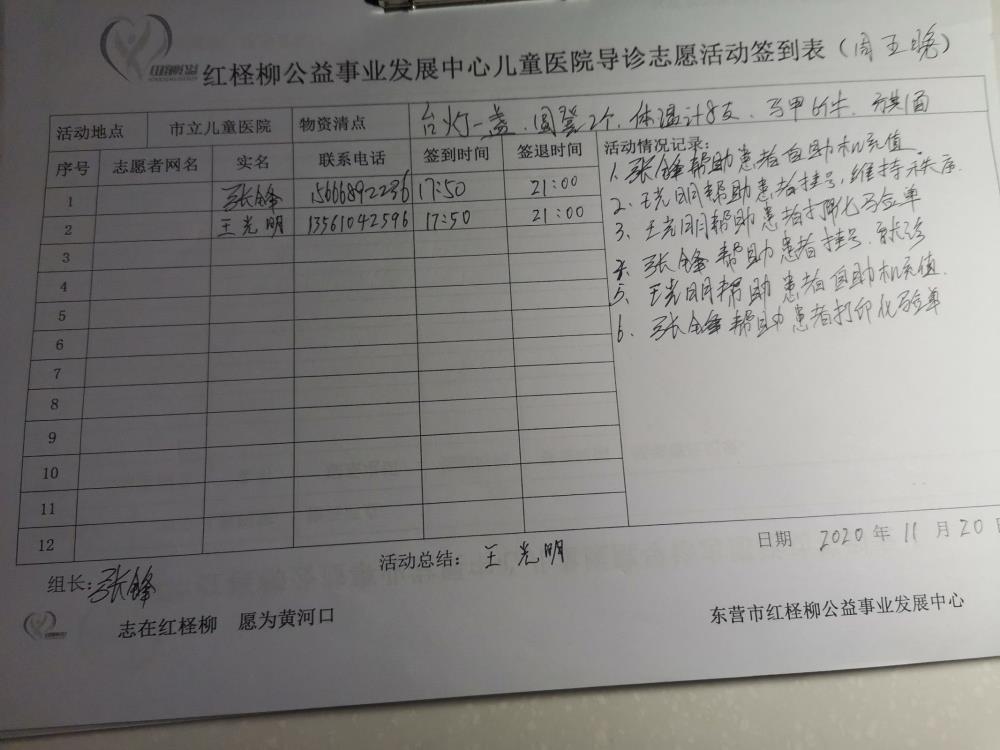 红柽柳公益事业发展中心儿童医院导诊志愿活动签到表（周五晚）
活动地点 市立儿童医院 物资清点 台灯一盏、圆凳2个、体温计8支、马甲
序号 志愿者网名 实名 联系电话 签到时间 签退时间 活动情况记录：
1 张锋 15666892236 17:50 21:00
2 王光明 13561042596 17:50 21:00
3
4
5
6
7
8
9
10
11
12
1、张锋帮助患者自助机充值.
2、王光明帮助患者挂号，维持秩序.
3、王光明帮助患者打印化验单
4、张锋帮助患者挂号、就诊
5、王光明帮助患者自助机充值.
6、张锋帮助患者打印化验单
日期 2020年11月20日
组长：张锋 活动总结：王光明
志在红柽柳 愿为黄河口
东营市红柽柳公益事业发展中心